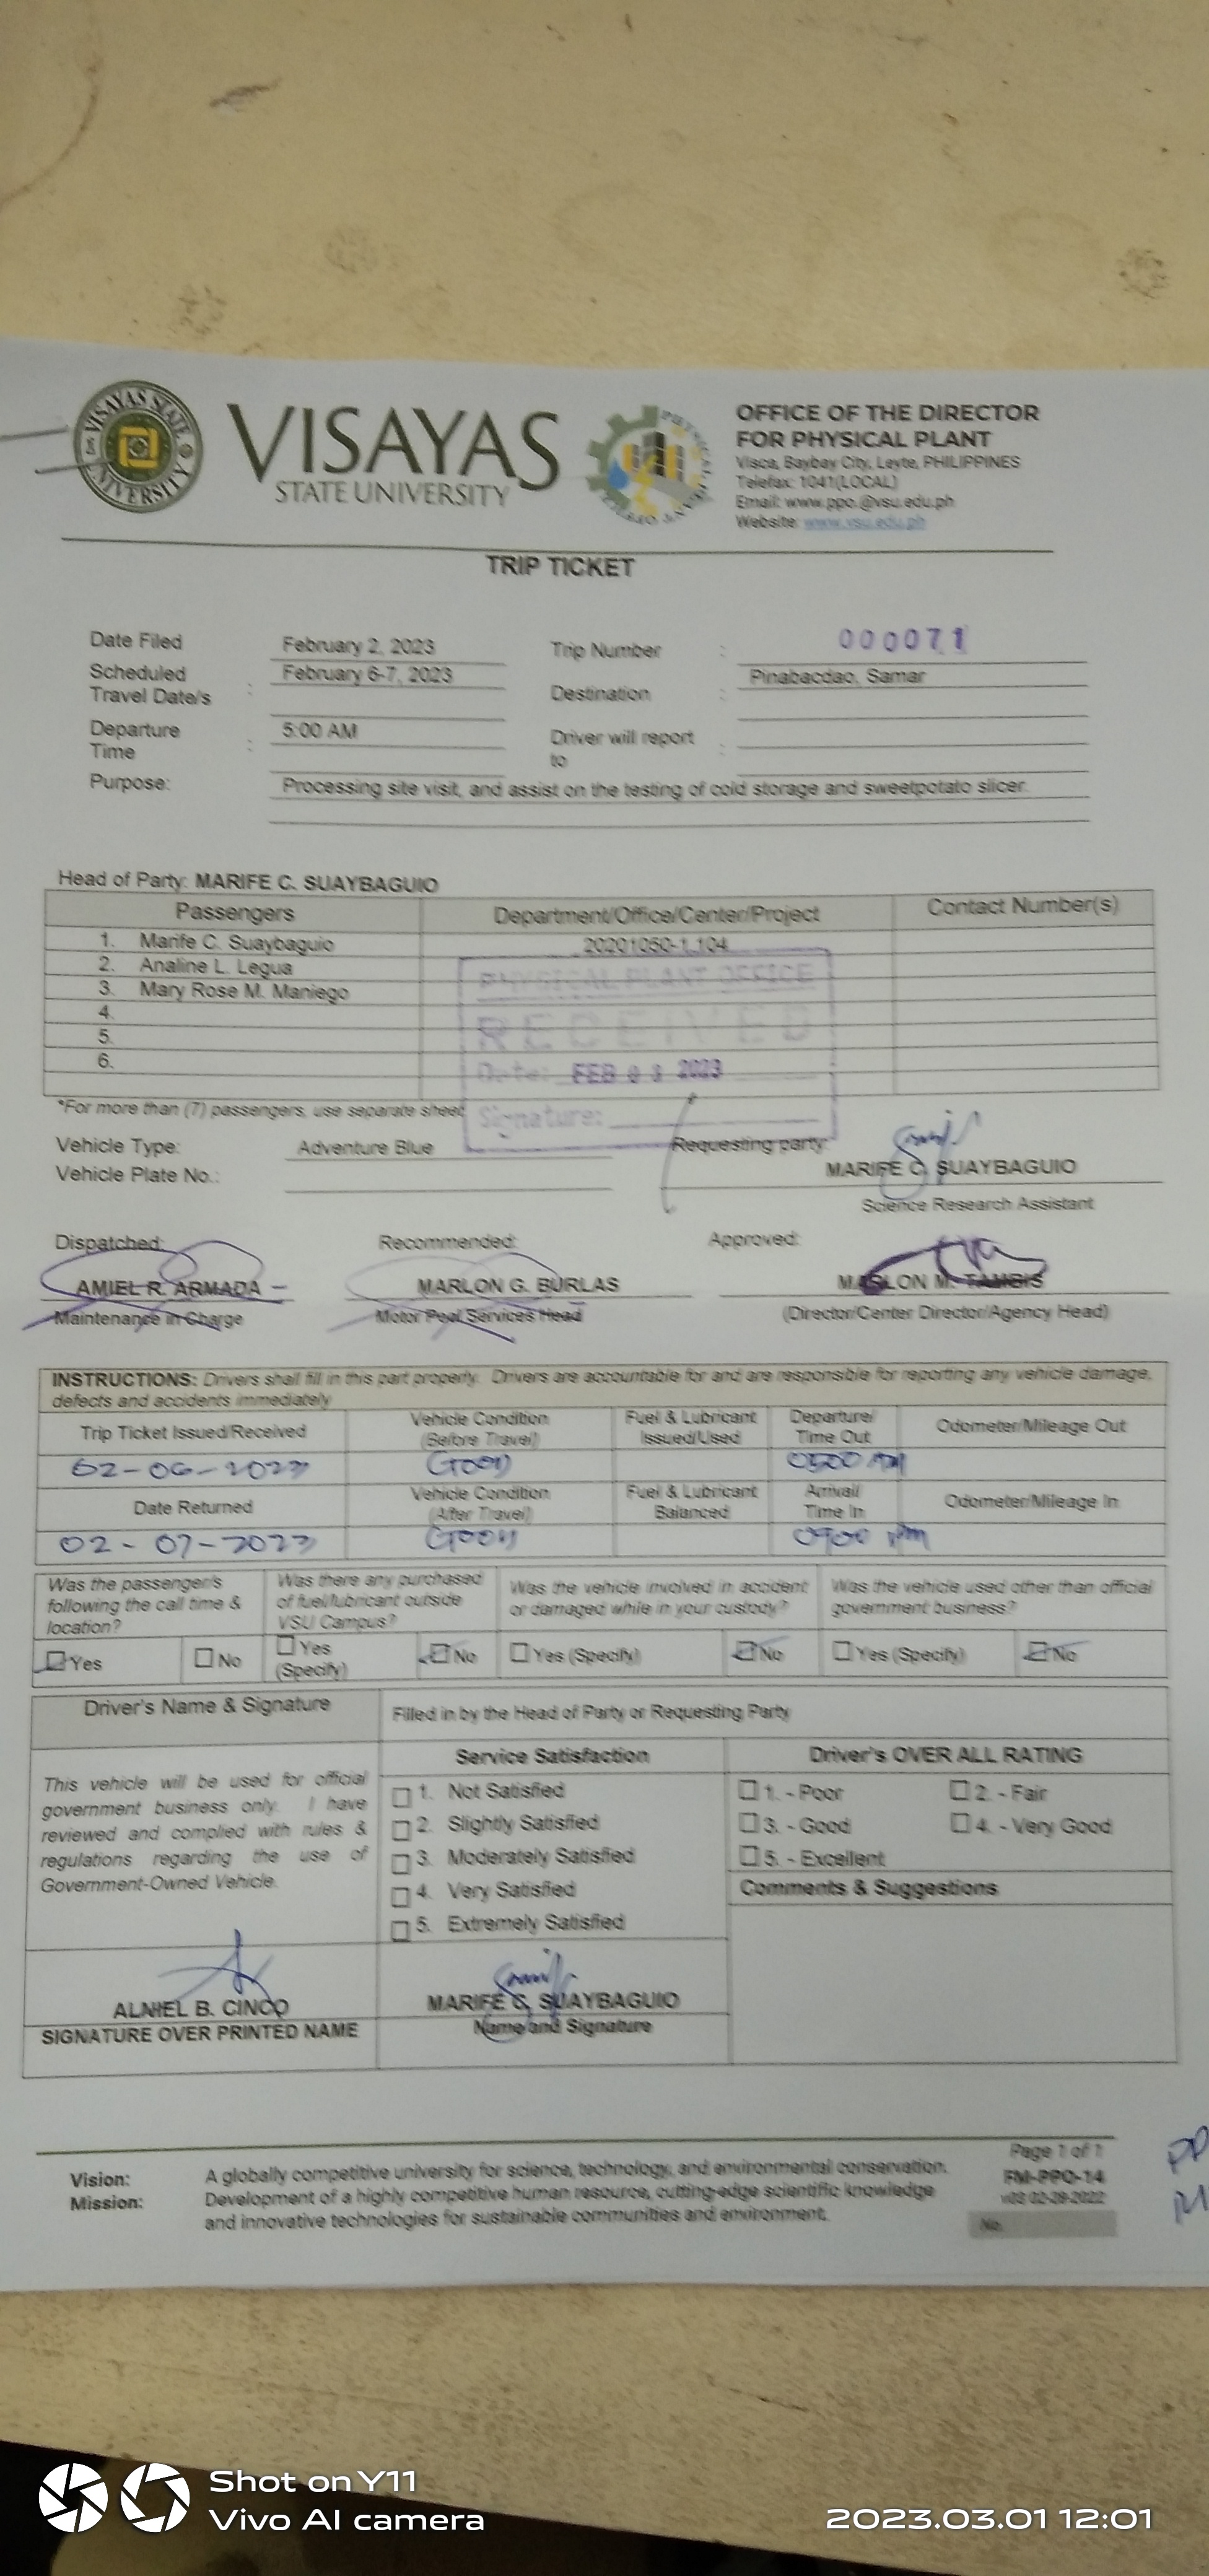 VISAYAS STATE UNIVERSITY
VISAYAS
STATE UNIVERSITY
OFFICE OF THE DIRECTOR
FOR PHYSICAL PLANT
Visca, Baybay City, Leyte, PHILIPPINES
Telefax: 1041(LOCAL)
Email: www.ppo.@vsu.edu.ph
Website: www.vsu.edu.ph
TRIP TICKET
Date Filed February 2, 2023 Trip Number : 000071
Scheduled Travel Date/s : February 6-7, 2023 Destination : Pinabacdao, Samar
Departure Time : 5:00 AM Driver will report to :
Purpose: Processing site visit, and assist on the testing of cold storage and sweetpotato slicer.
Head of Party: MARIFE C. SUAYBAGUIO
Passengers Department/Office/Center/Project Contact Number(s)
1. Marife C. Suaybaguio 20201050-1.104
2. Analine L. Legua
3. Mary Rose M. Maniego
4.
5.
6.
PHYSICAL PLANT OFFICE
RECEIVED
Date: FEB 03 2023
Signature:
*For more than (7) passengers, use separate sheet
Vehicle Type: Adventure Blue Requesting party:
Vehicle Plate No.: MARIFE C. SUAYBAGUIO
Science Research Assistant
Dispatched: Recommended: Approved:
AMIEL R. ARMADA MARLON G. BURLAS MARLON M. TAMBIS
Maintenance in Charge Motor Pool Services Head (Director/Center Director/Agency Head)
INSTRUCTIONS: Drivers shall fill in this part properly. Drivers are accountable for and are responsible for reporting any vehicle damage,
defects and accidents immediately
Trip Ticket Issued/Received Vehicle Condition (Before Travel) Fuel & Lubricant Issued/Used Departure/ Time Out Odometer/Mileage Out
02-06-2023 Good 0500 AM
Date Returned Vehicle Condition (After Travel) Fuel & Lubricant Balanced Arrival/ Time In Odometer/Mileage In
02-07-2023 Good 0900 PM
Was the passenger's following the call time & location? Was there any purchased of fuel/lubricant outside VSU Campus? Was the vehicle involved in accident or damaged while in your custody? Was the vehicle used other than official government business?
Yes No Yes (Specify) No Yes (Specify) No Yes (Specify) No
Driver's Name & Signature Filled in by the Head of Party or Requesting Party
Service Satisfaction Driver's OVER ALL RATING
This vehicle will be used for official
government business only. I have
reviewed and complied with rules &
regulations regarding the use of
Government-Owned Vehicle.
1. Not Satisfied
2. Slightly Satisfied
3. Moderately Satisfied
4. Very Satisfied
5. Extremely Satisfied
1. - Poor 2. - Fair
3. - Good 4. - Very Good
5. - Excellent
Comments & Suggestions
ALNIEL B. CINCO MARIFE C. SUAYBAGUIO
SIGNATURE OVER PRINTED NAME Name and Signature
Page 1 of 1
Vision: A globally competitive university for science, technology, and environmental conservation.
Mission: Development of a highly competitive human resource, cutting-edge scientific knowledge
and innovative technologies for sustainable communities and environment.
FM-PPO-14
v03 02-28-2022
No.
Shot on Y11
Vivo AI camera
2023.03.01 12:01